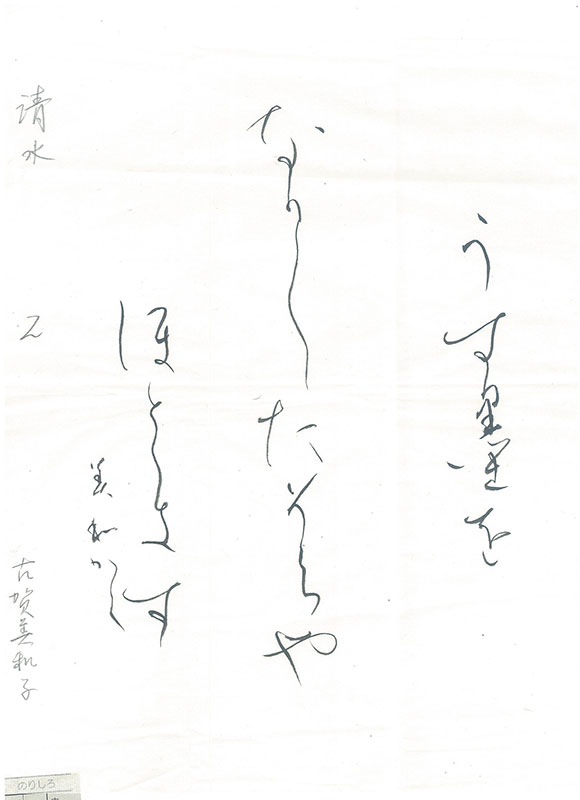 うす墨を
なかしたそらや
ほとゝきす
美和かく
清水
古賀美和子
のりしろ